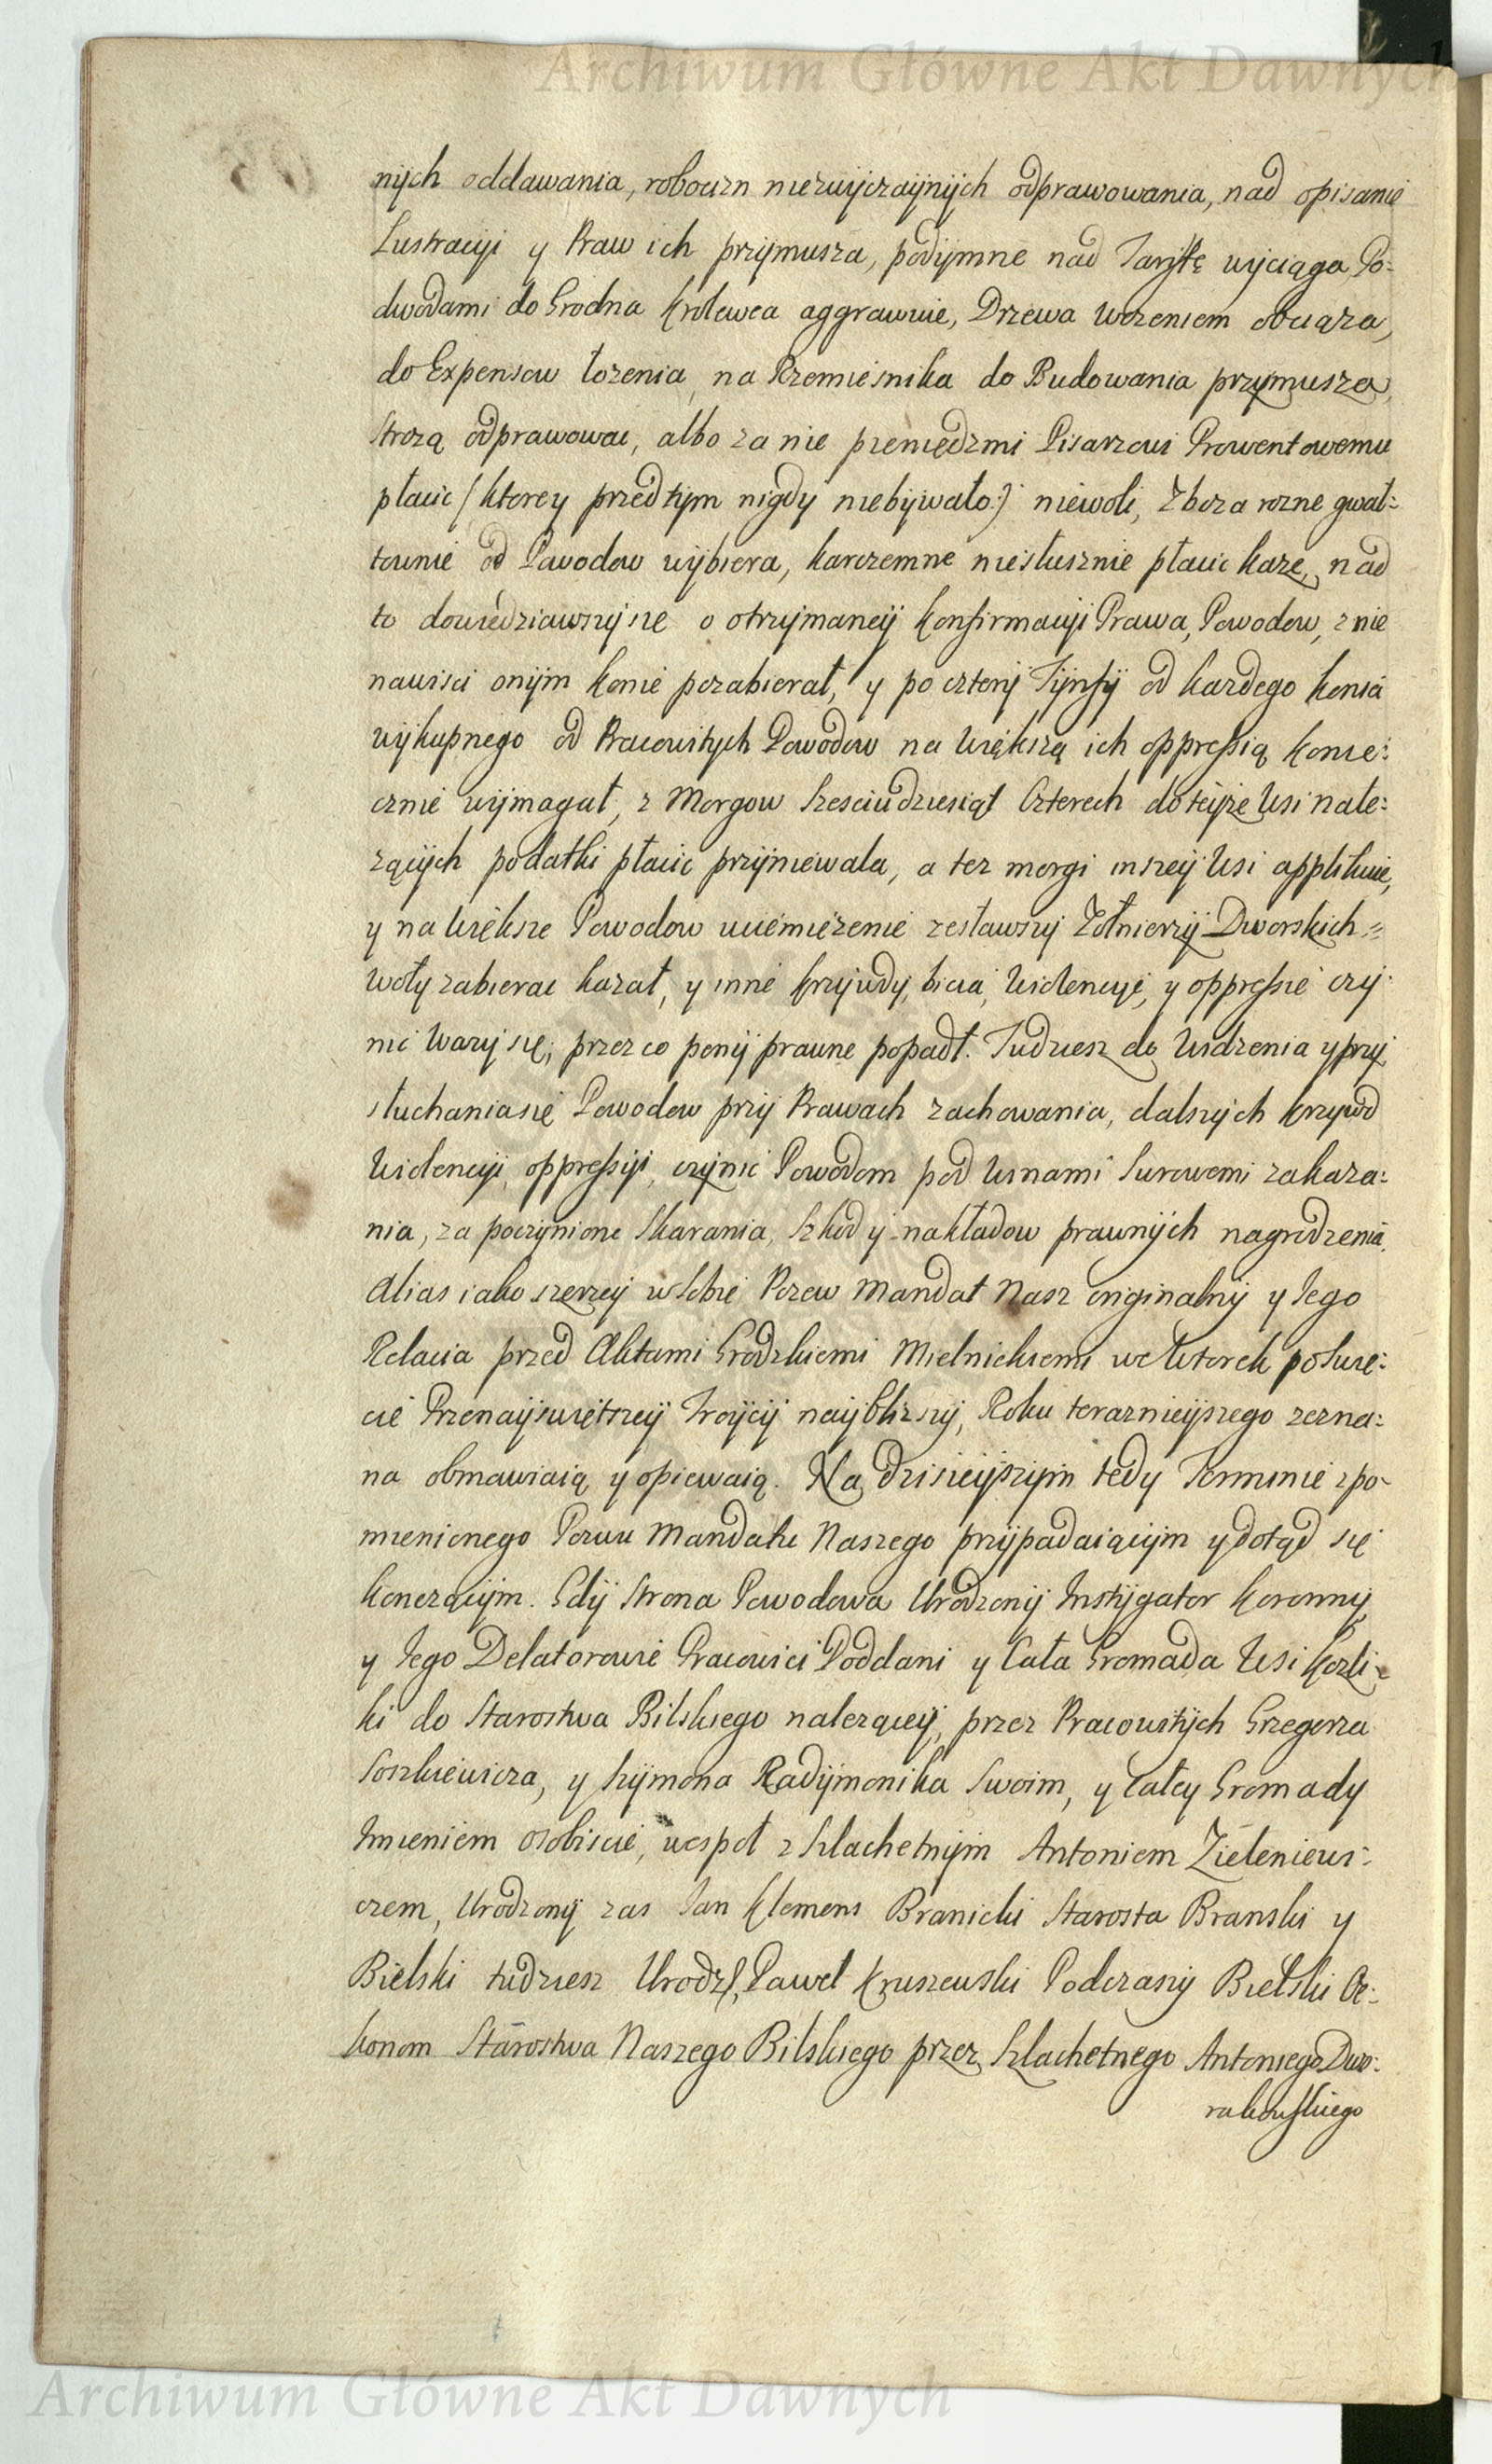 Archiwum Główne Akt Dawnych
nÿch oddawania, robocizn niezwÿczaÿnÿch odprawowania, nad opisanie
Lustracÿi y Praw ich przÿmusza, podÿmne nad Tarÿffę wÿciąga, Po=
dwodami do Grodna Krolewca aggrawuie, Drzewa wozeniem obciąza,
do Expensow łozenia, na Rzemiesnika do Budowania przymusza,
Strozą odprawowac, albo za nie pieniędzmi Pisarzowi Prowentowemu
płacic (ktorey przedtÿm nigdy niebÿwało:) niewoli, Zboza rozne gwał=
townie od Powodow wÿbiera, karczemne niesłusznie płacic kaze, nad
to dowiedziawszÿ sie o otrzÿmaneÿ Konfirmacÿi Prawa, Powodow, z nie
nawisci onÿm konie pozabierał, y po czterÿ Tÿnfÿ od kazdego konia
wÿkupnego od Pracowitÿch Powodow na większą ich oppressią konie=
cznie wÿmagał, z Morgow Szesciudziesiąt Czterech do teÿze Wsi nale=
zącÿch podatki płacic przÿniewala, a tez morgi inszeÿ Wsi applikuie,
y na większe Powodow uciemiezenie zesławszÿ Zołnierzÿ Dworskich=
woły zabierac kazał, y inne krzÿwdÿ, bicia, Wiolencÿe, y oppressie czÿ=
nic wazÿ się, przez co penÿ prawne popadł. Tudziesz do Widzenia y przÿ
słuchania się Powodow przÿ Prawach zachowania, dalszÿch krzÿwd
Wiolencÿi, oppressÿi, czÿnic Powodom pod Winami Surowemi zakaza=
nia, za poczÿnione Skarania, Szkod ÿ nakładow prawnÿch nagrodzenia,
Alias iako szerzeÿ w Sobie Pozew Mandat Nasz originalnÿ y Jego
Relacia przed Aktami Grodzkiemi Mielnickiemi we Wtorek po Swię=
cie Przenaÿswiętszeÿ Troÿcÿ naÿblizszÿ, Roku terazniejszego zezna=
na obmawiaią y opiewaią. Na dzisieÿszÿm tedy Terminie z po=
mienionego Pozwu Mandatu Naszego przÿpadaiącÿm y dotąd się
konczącÿm. Gdÿ Strona Powodowa Urodzonÿ Instÿgator Koronnÿ
y Jego Delatorowie Pracowici Poddani y Cała Gromada Wsi Kozli=
ki do Starostwa Bilskiego naleząceÿ, przez Pracowitÿch Grzegorza
Soszkiewicza, y Szÿmona Radÿmonika Swoim, y Całey Gromady
Imieniem osobiscie, wespoł z Szlachetnÿm Antoniem Zieleniewi=
czem, Urodzonÿ zas Jan Klemens Branicki Starosta Branski y
Bielski tudziesz Urodz:, Paweł Kruszewski Podczaszÿ Bielski Oe=
konom Starostwa Naszego Bilskiego przez Szlachetnego Antoniego Dwo=
rakowskiego
Archiwum Główne Akt Dawnych